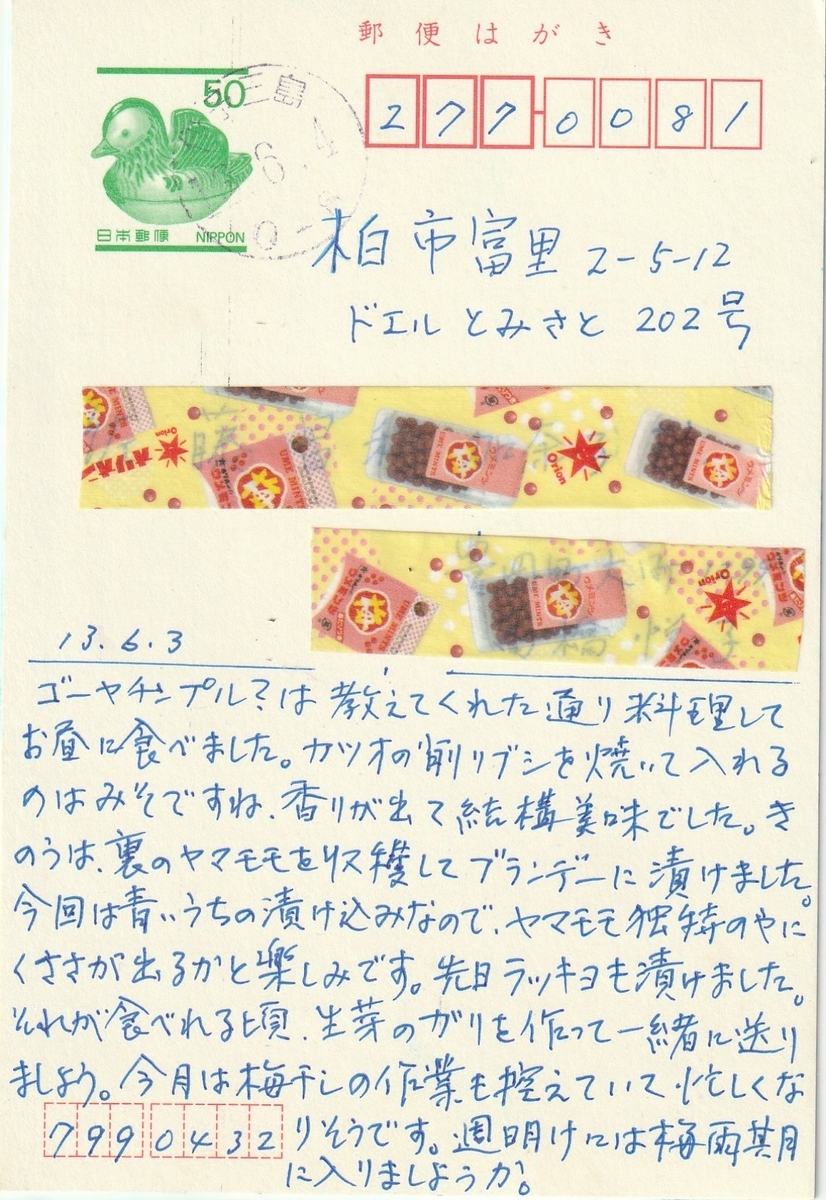 郵便はがき
50
三島
6.4
日本郵便 NIPPON
277-0081
柏市富里 2-5-12
ドエル とみさと 202号
Orion
オリオン
UME MINTS
梅
ウメミンツ
UME MINTS
Orion
ウメミンツ
UME MINTS
梅
UME MINTS
ウメミンツ
UME MINTS
Orion
13.6.3
ゴーヤチンプル?は教えてくれた通り料理して
お昼に食べました。カツオの削りブシを焼いて入れる
のはみそですね、香りが出て結構美味でした。き
のうは、裏のヤマモモを収穫してブランデーに漬けました。
今回は青いうちの漬け込みなので、ヤマモモ独特のやに
くささが出るかと楽しみです。先日ラッキョも漬けました。
それが食べれる頃、生芽のガリを作って一緒に送り
ましょう。今月は梅干しの作業も控えていて忙しくな
りそうです。週明けには梅雨其月
に入りましようか。
7990432